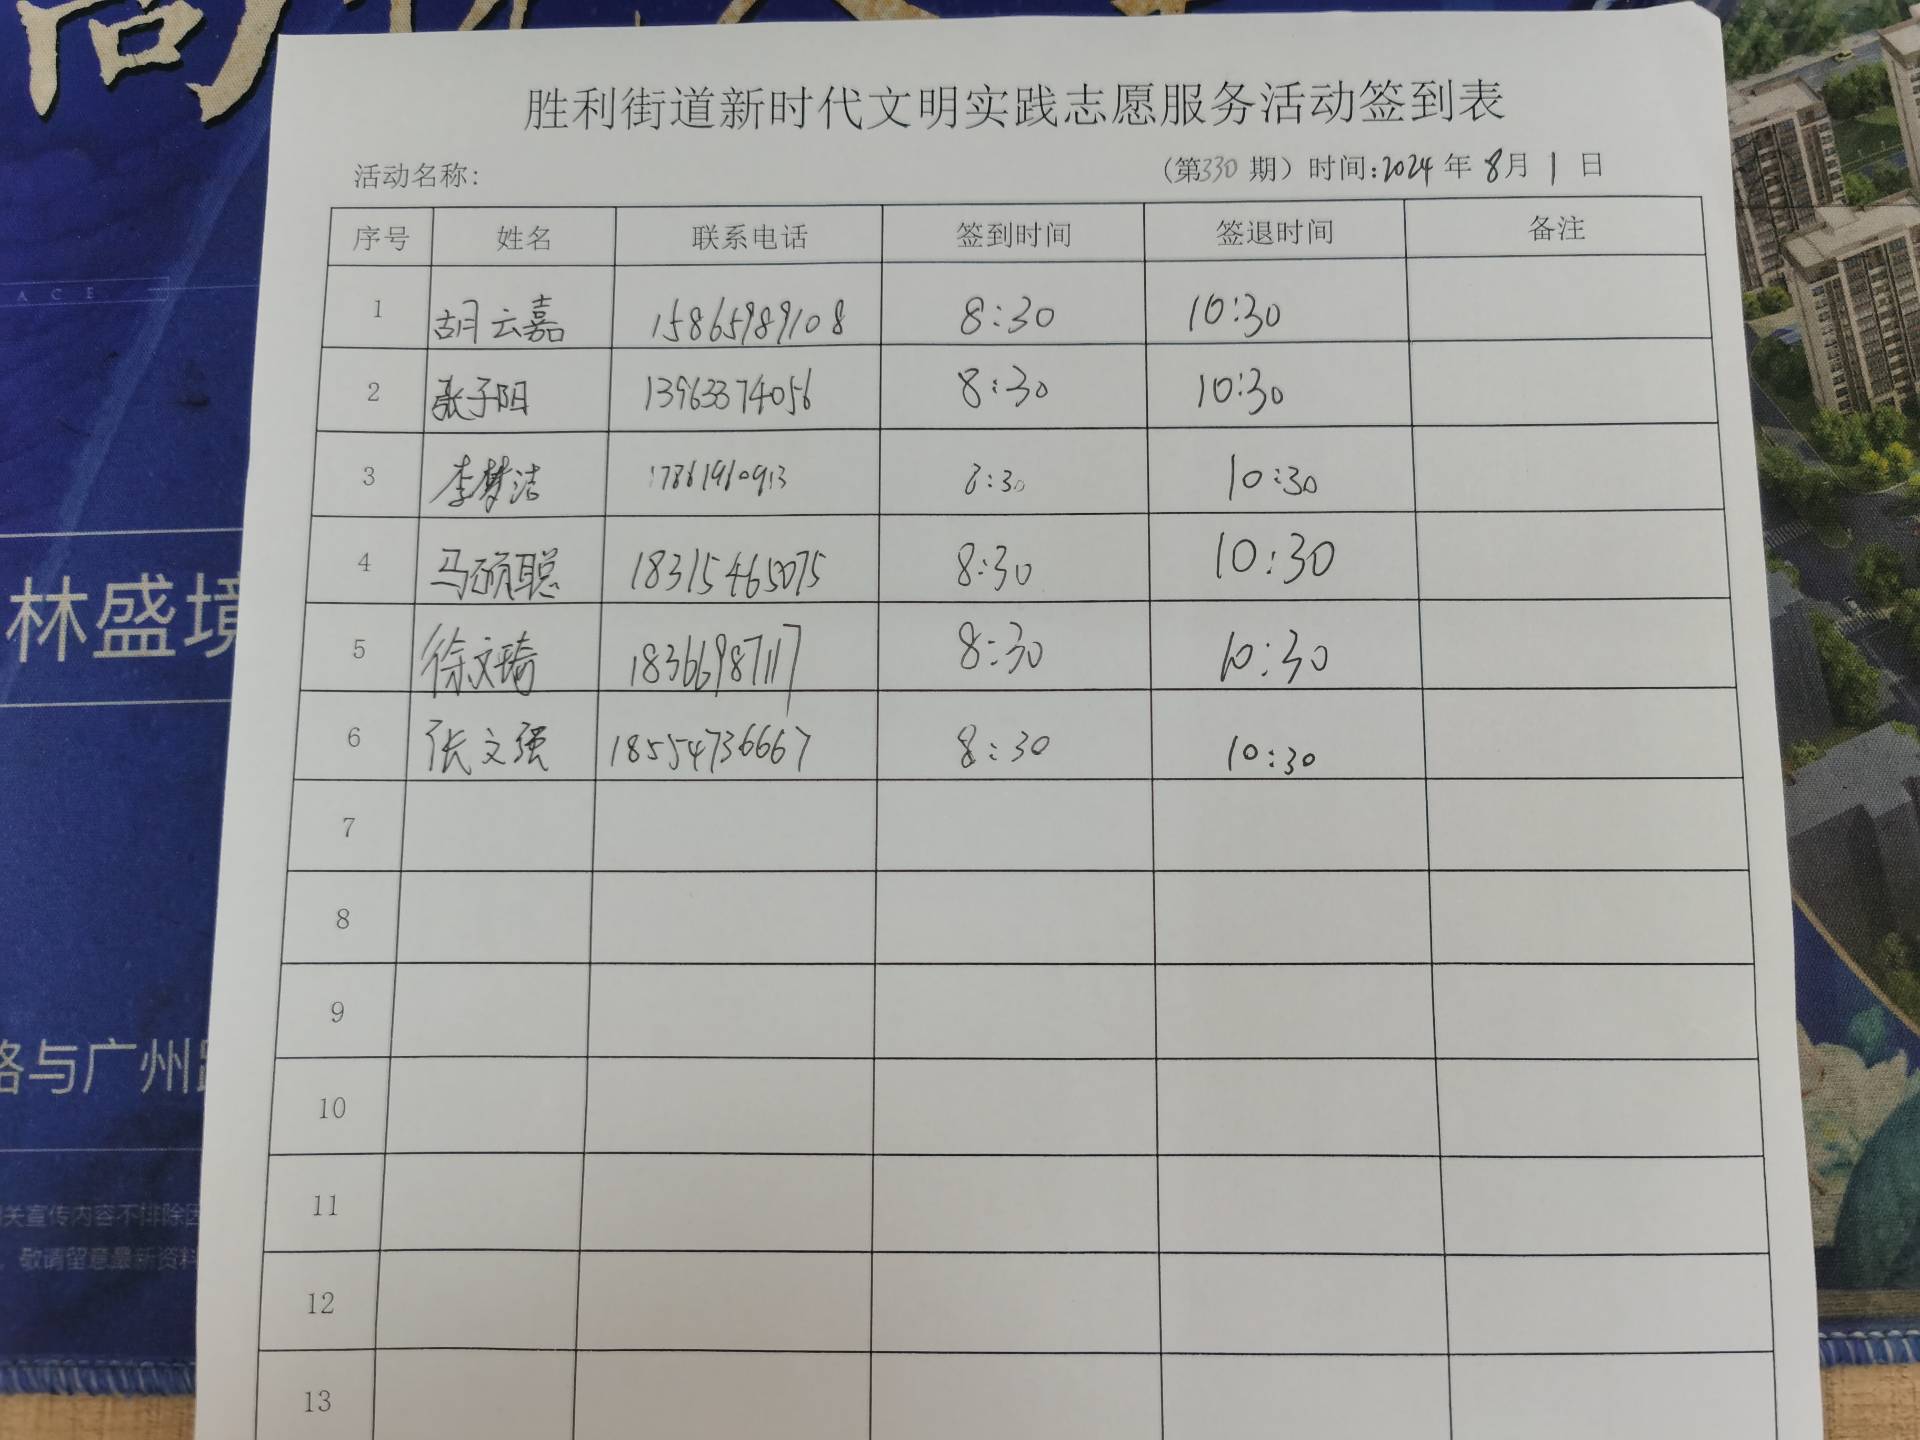 胜利街道新时代文明实践志愿服务活动签到表
活动名称: （第330期）时间:2024年8月1日
序号 姓名 联系电话 签到时间 签退时间 备注
1 胡云嘉 15865989108 8:30 10:30
2 张子阳 13963374056 8:30 10:30
3 李梦洁 17861960913 8:30 10:30
4 马硕聪 18315465075 8:30 10:30
5 徐文琦 18366987117 8:30 10:30
6 张文强 18554736667 8:30 10:30
7
8
9
10
11
12
13
ACE
林盛境
路与广州路
相关宣传内容不排除因
敬请留意最新资料